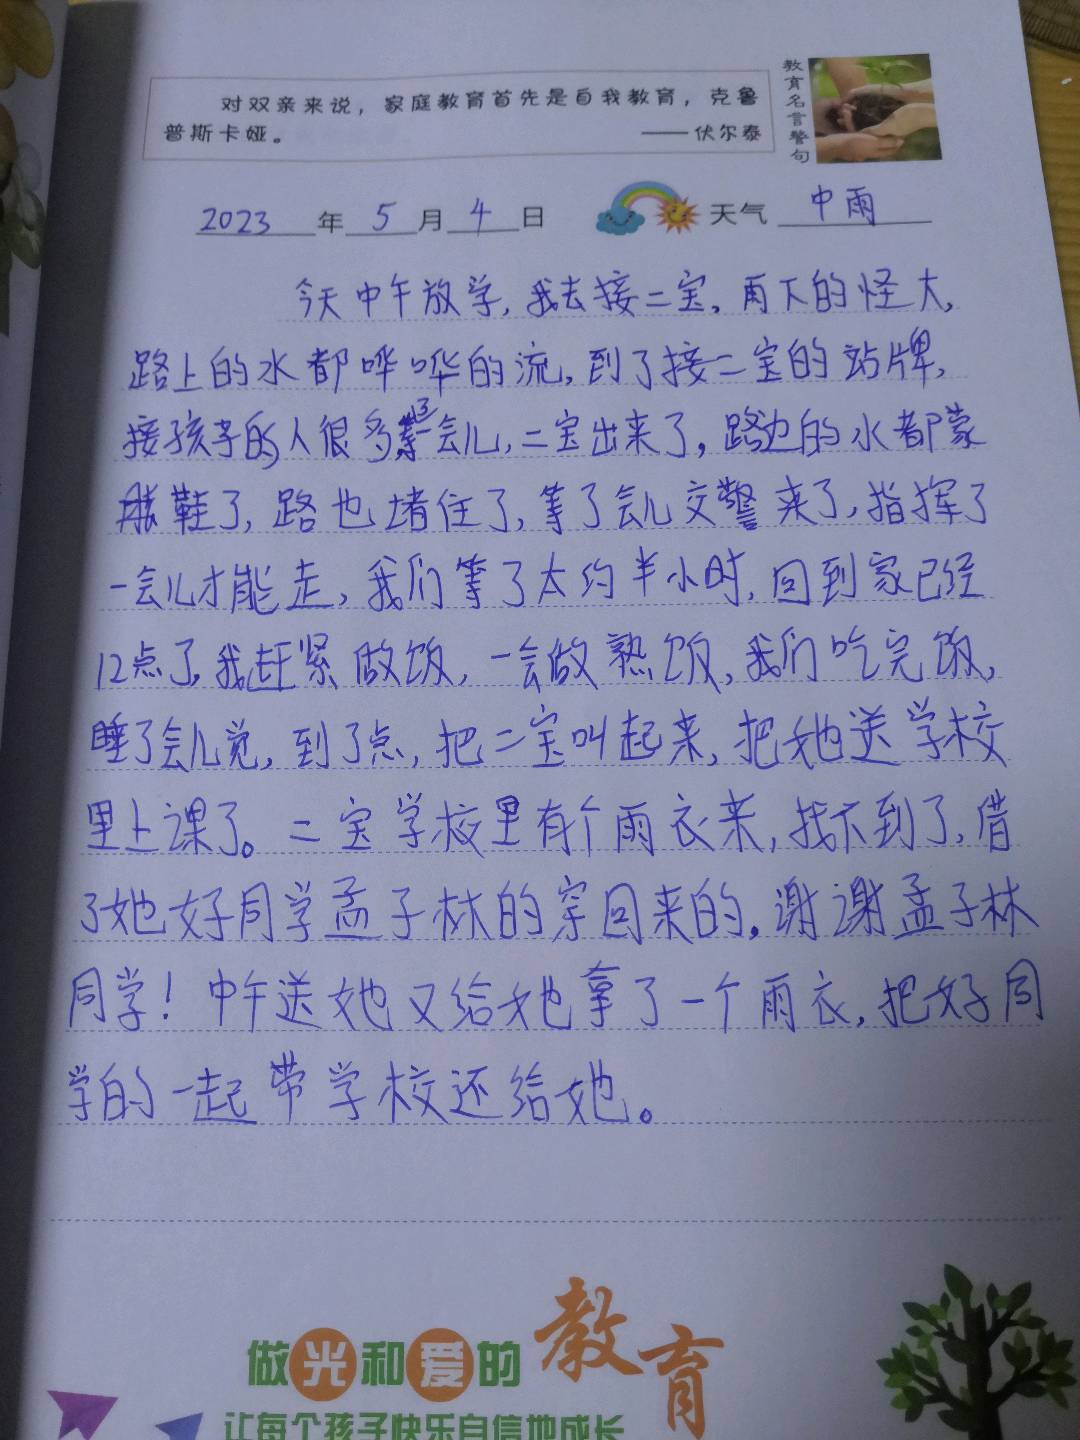 对双亲来说，家庭教育首先是自我教育，克鲁
普斯卡娅。 ——伏尔泰
教育名言警句
2023年5月4日 天气 中雨
今天中午放学，我去接二宝，雨下的怪大，
路上的水都哗哗的流，到了接二宝的站牌，
接孩子的人很多，等了会儿，二宝出来了，路边的水都蒙
鞋了，路也堵住了，等了会儿交警来了，指挥了
一会儿才能走，我们等了大约半小时，回到家已经
12点了，我赶紧做饭，一会做熟饭，我们吃完饭，
睡了会儿觉，到了点，把二宝叫起来，把她送学校
里上课了。二宝学校里有个雨衣来，找不到了，借
了她好同学孟子林的穿回来的。谢谢孟子林
同学！中午送她又给她拿了一个雨衣，把好同
学的一起带学校还给她。
做光和爱的教育
让每个孩子快乐自信地成长